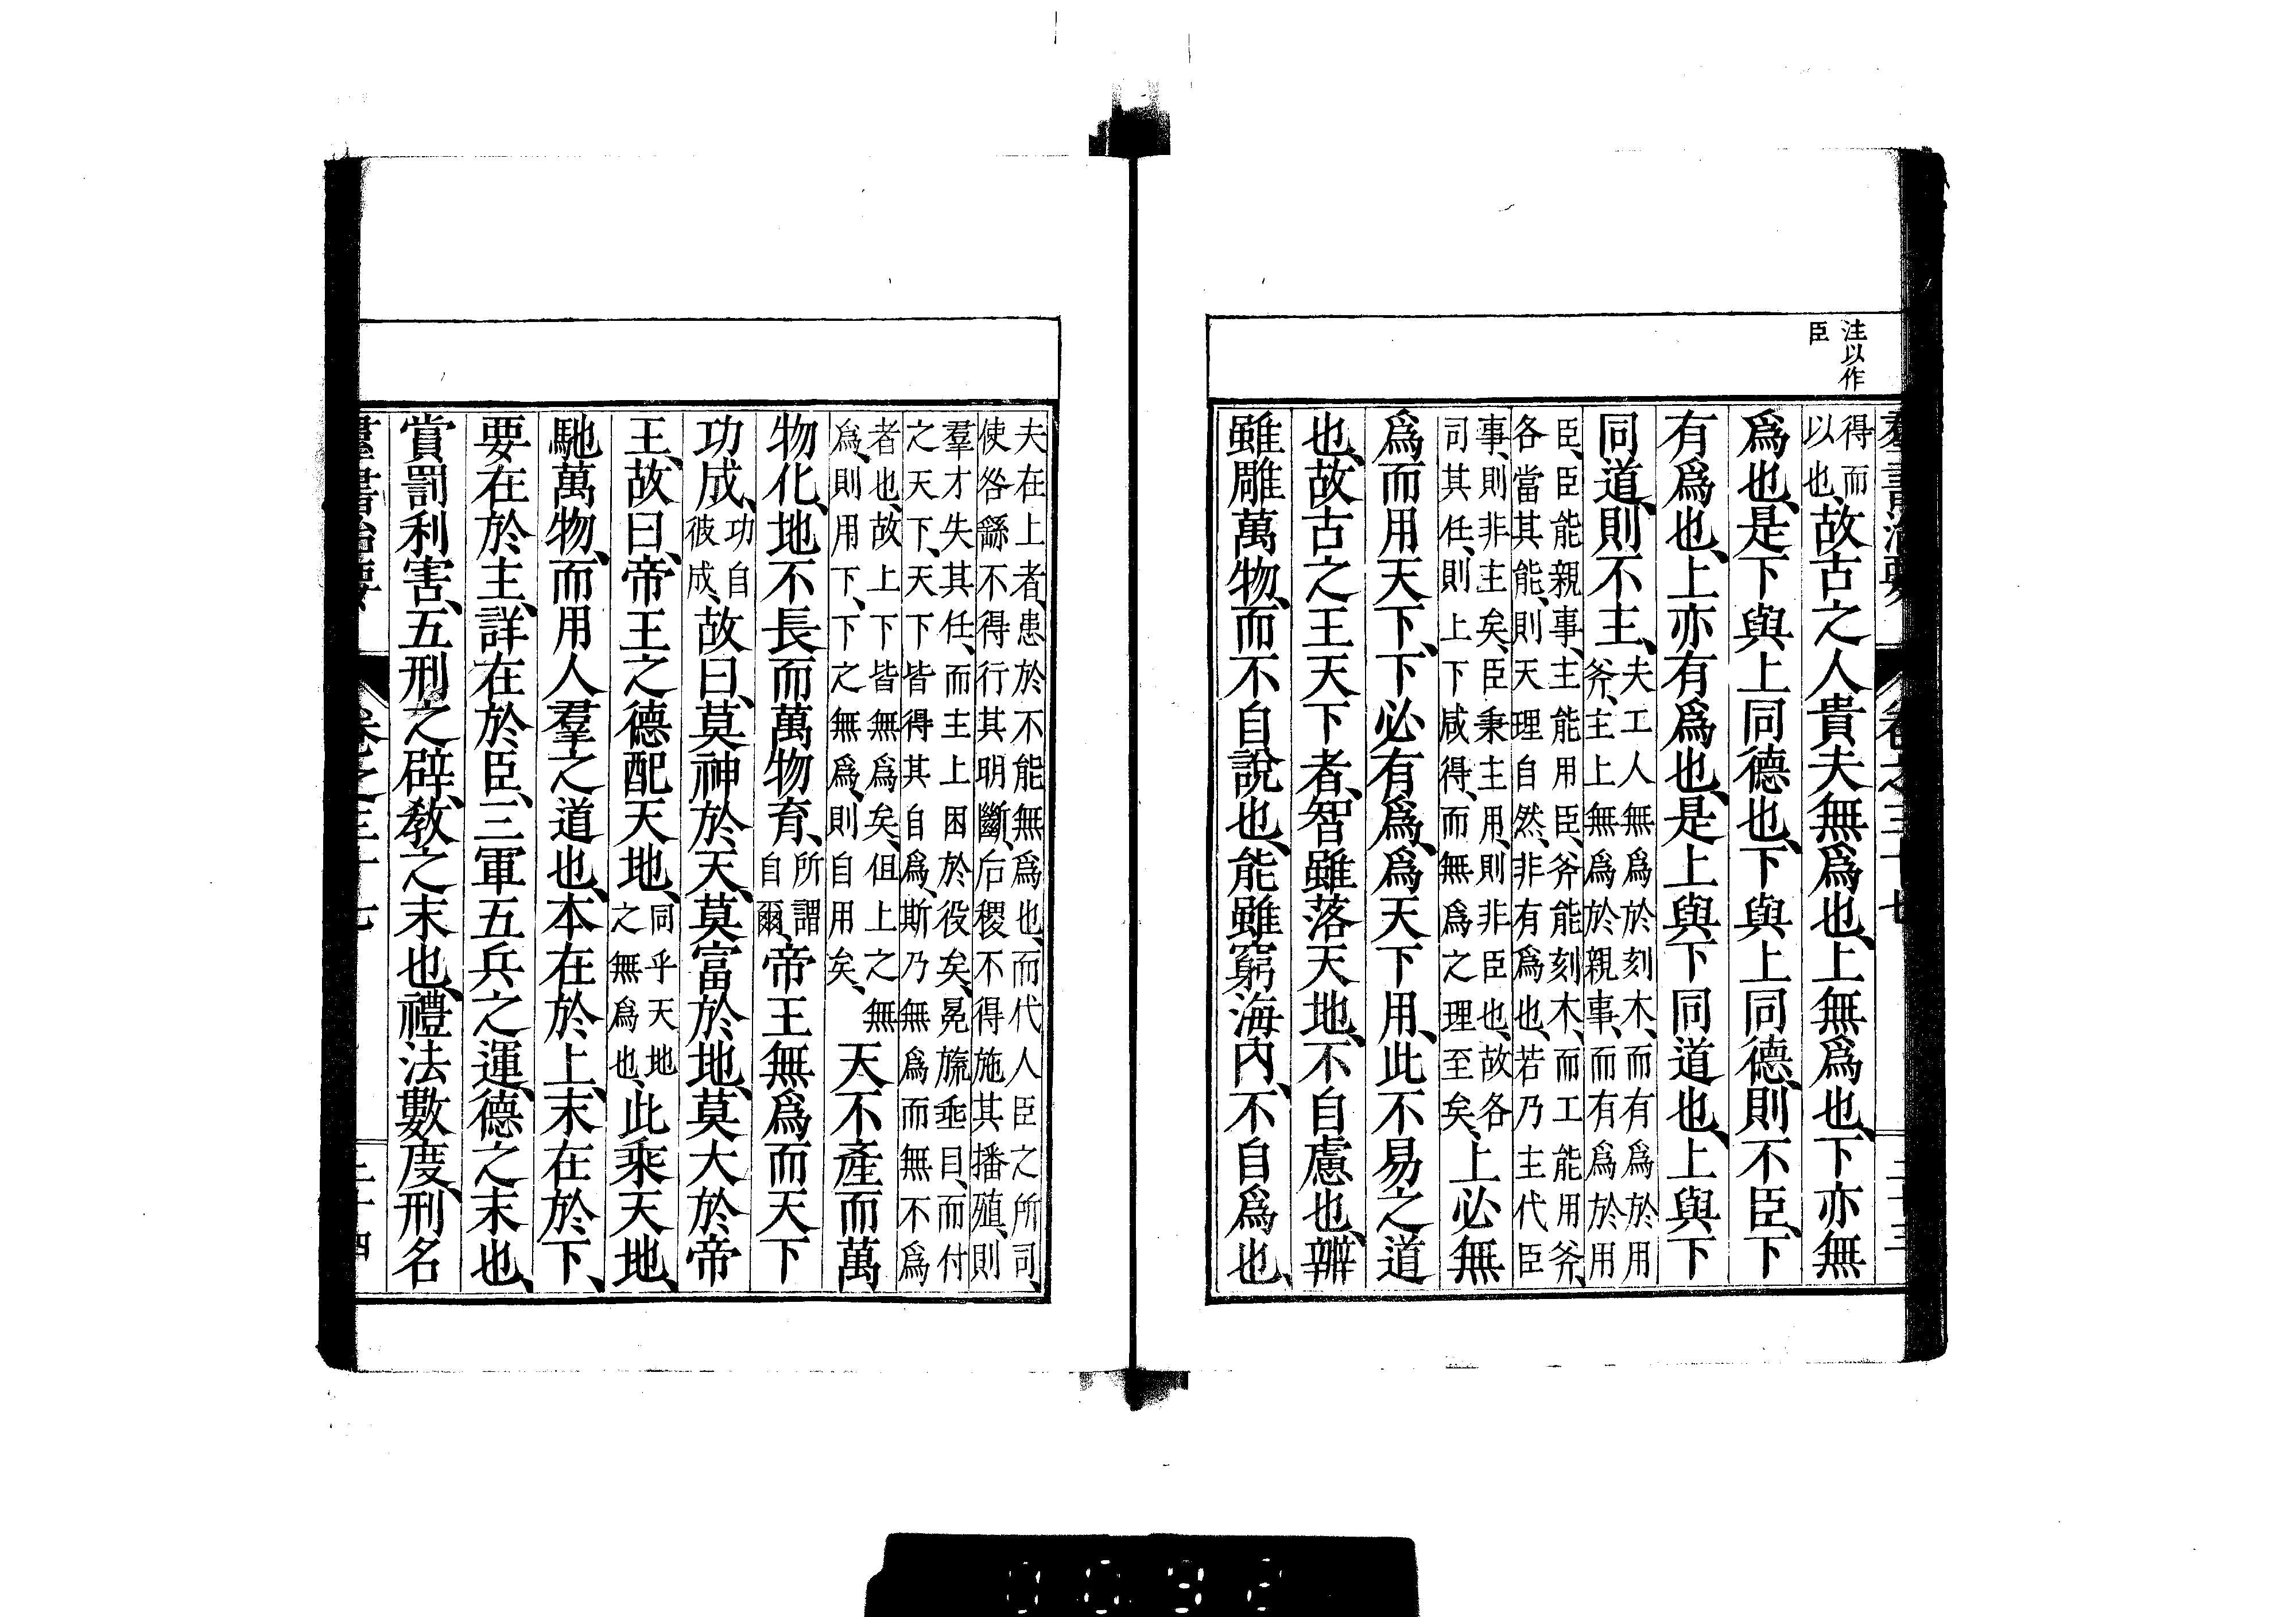 注以作
臣
羣書治要 卷之三十七 二十三
得而以也、故古之人貴夫無爲也、上無爲也、下亦無
爲也、是下與上同德也、下與上同德、則不臣、下
有爲也、上亦有爲也、是上與下同道也、上與下
同道、則不主、夫工人無爲於刻木、而有爲於用斧、主上無爲於親事、而有爲於用
臣、臣能親事、主能用臣、斧能刻木、而工能用斧、各當其能、則天理自然、非有爲也、若乃主代臣
事、則非主矣、臣秉主用、則非臣也、故各司其任、則上下咸得、而無爲之理至矣、上必無
爲而用天下、下必有爲、爲天下用、此不易之道
也、故古之王天下者、智雖落天地、不自慮也、辯
雖雕萬物、而不自說也、能雖窮海內、不自爲也、
夫在上者、患於不能無爲也、而代人臣之所司、使咎繇不得行其明斷、后稷不得施其播殖、則
羣才失其任、而主上困於役矣、冕旒垂目、而付之天下、天下皆得其自爲、斯乃無爲而無不爲
者也、故上下皆無爲矣、但上之無爲、則用下、下之無爲、則自用矣、 天不產而萬
物化、地不長而萬物育、所謂自爾、帝王無爲而天下
功成、功自彼成、故曰、莫神於天、莫富於地、莫大於帝
王、故曰、帝王之德配天地、同乎天地之無爲也、此乘天地、
馳萬物、而用人羣之道也、本在於上、末在於下、
要在於主、詳在於臣、三軍五兵之運、德之末也、
賞罰利害、五刑之辟、教之末也、禮法數度、刑名
羣書治要 卷之三十七 二十四